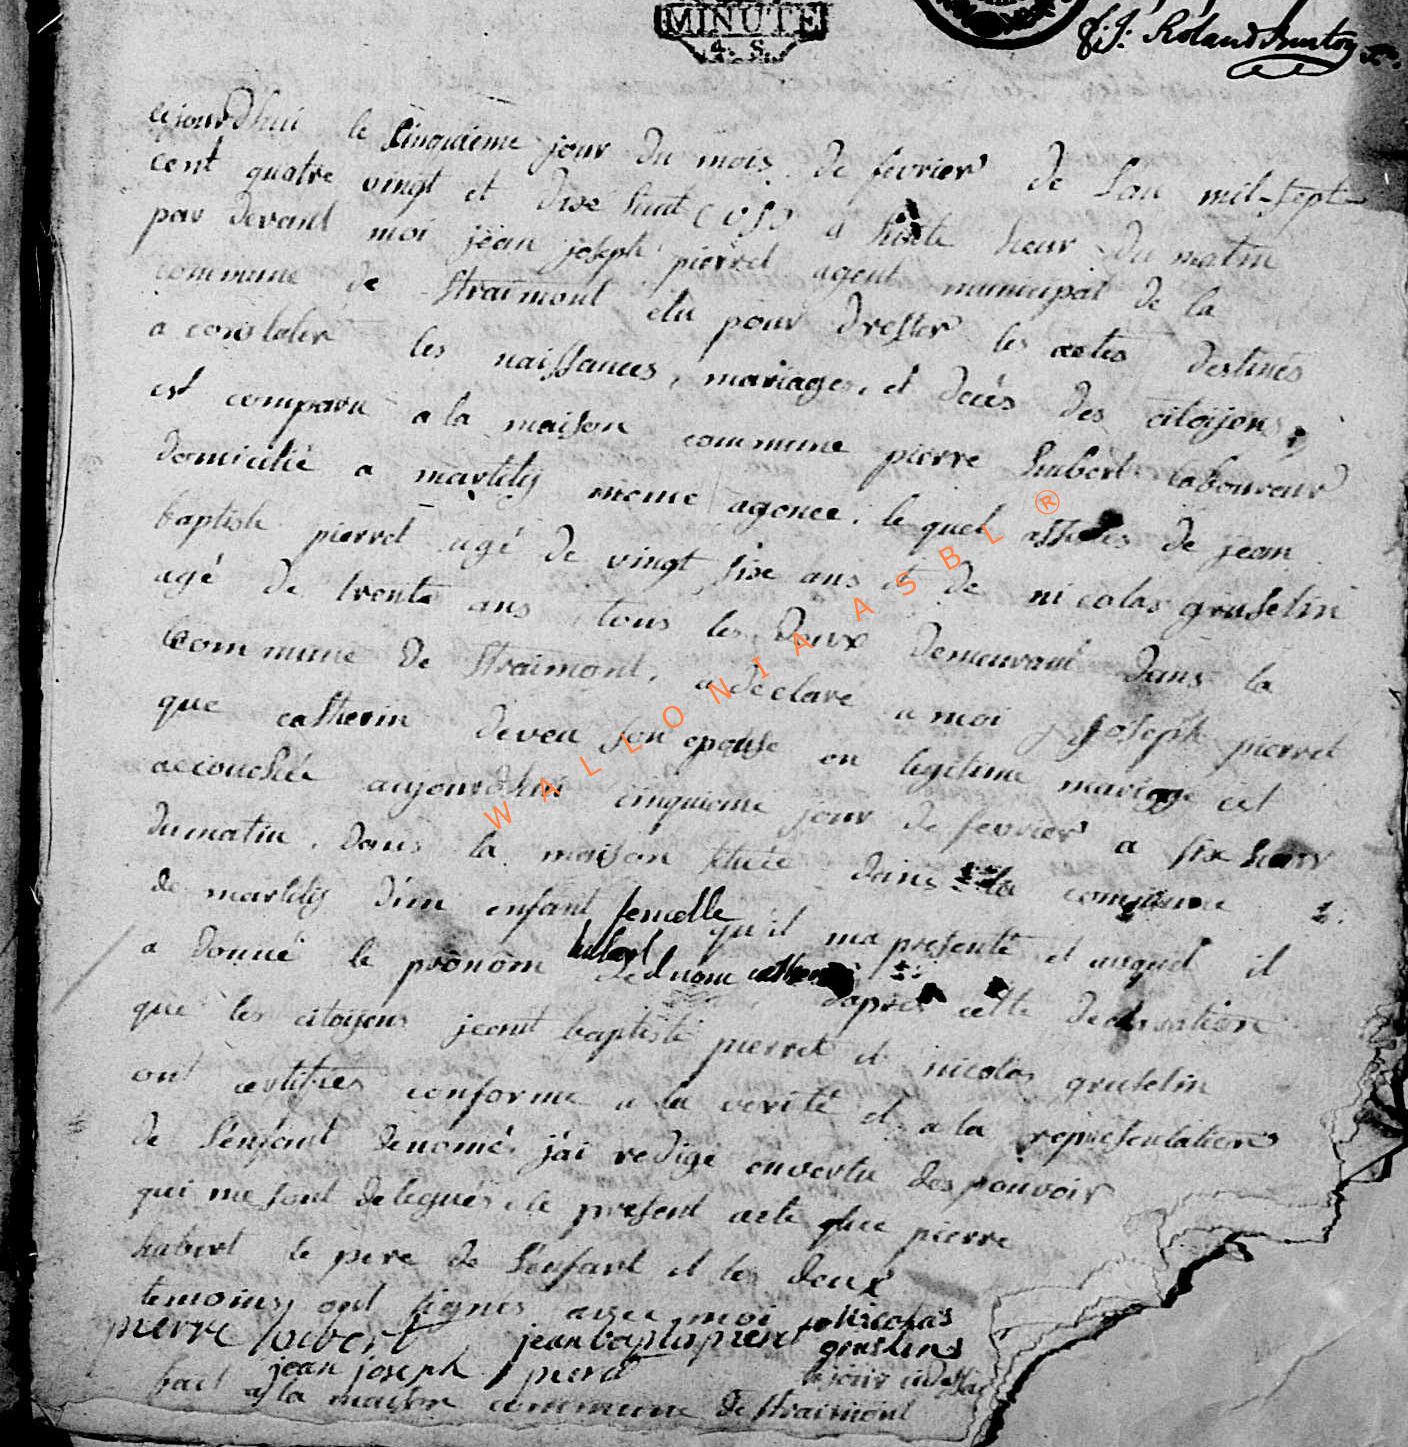 MINUTE
4. S.
J. J. Roland
aujourdhui le Cinquieme jour du mois de fevrier de Lan mil-sept
cent quatre vingt et dixe huit (v s) a huite heur du matin
par devant moi jean joseph pierret agent municipal de la
commune de Straimont elu pour dresser les actes destinés
a constater les naissances, mariages, et décés des citoijens
est comparu a la maison commune pierre hubert laboureur
domicilié a martilly meme agence, le quel assistes de jean
baptiste pierret agé de vingt sixe ans et de nicolas gruselin
agé de trente ans tous les deux demeurant dans la
commune de Straimont, a déclaré a moi joseph pierret
que catherin devea son epouse en legitime mariage est
accouchée aujourdhui cinquieme jour de fevrier a six heur
du matin, dans la maison située dans la commune
de martilly d'un enfant femelle qu'il ma presenté et auquel il
a donné le prénom d'apres cette declaration
que les citoyens jeant baptiste pierret et nicolas gruselin
ont certifiés conforme a la verité et a la représentations
de L'enfant denomé, j'ai redigé en vertu des pouvoir
qui me sont delegués le present acte que pierre
hubert le pere de L'enfant et les deux
temoins ont signés avec moi Nicolas
pierre hubert jean baptis pieret gruslens
jean joseph pieret le jour
fait a la maison commune de Straimont
WALLONIA ASBL ®